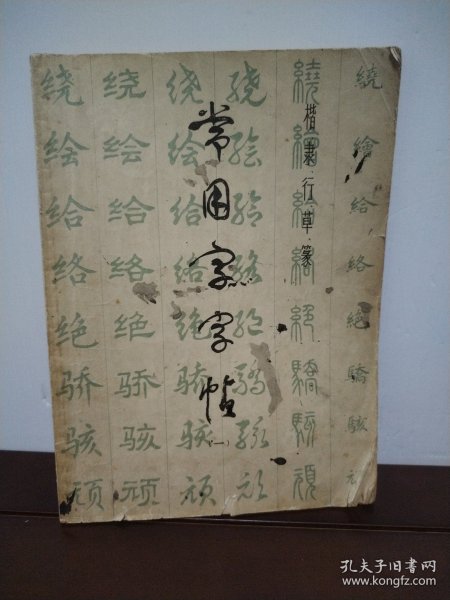 常用字字帖
(一)
楷·隶·行·草·篆
绕 绕 绕 绕 繞 繞
绘 绘 绘 绘 繪 繪
给 给 给 给 給 給
络 络 络 络 絡 絡
绝 绝 绝 绝 絕 絕
骄 骄 骄 骄 驕 驕
骇 骇 骇 骇 駭 駭
顽 顽 顽 顽 頑
孔夫子旧书网
www.kongfz.com